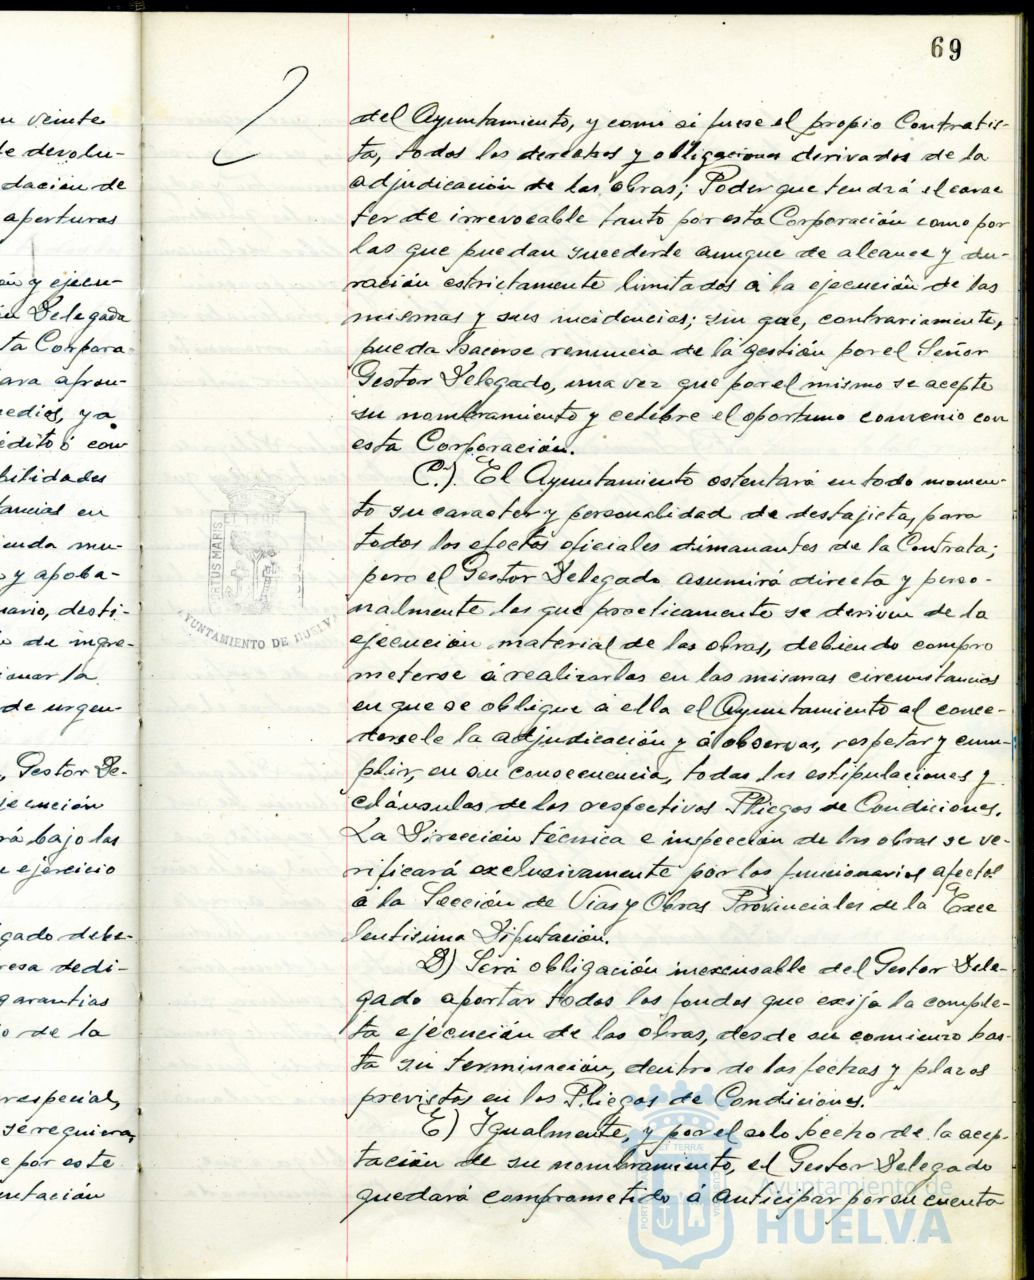 69
del Ayuntamiento, y como si fuese el propio Contratis-
ta, todos los derechos y obligaciones derivados de la
adjudicación de las obras; Poder que tendrá el carac
ter de irrevocable tanto por esta Corporación como por
las que puedan sucederle aunque de alcance y du-
ración estrictamente limitados á la ejecución de las
mismas y sus incidencias; sin que, contrariamente,
pueda hacerse renuncia de la gestión por el Señor
Gestor Delegado, una vez que por el mismo se acepte
su nombramiento y celebre el oportuno convenio con
esta Corporación.
C.) El Ayuntamiento ostentará en todo momen-
to su caracter y personalidad de destajista, para
todos los efectos oficiales dimanantes de la Contrata;
pero el Gestor Delegado asumirá directa y perso-
nalmente los que practicamente se deriven de la
ejecución material de las obras, debiendo compro
meterse á realizarlas en las mismas circunstancias
en que se obligue á ella el Ayuntamiento al conce-
dersele la adjudicación y á observar, respetar y cum-
plir, en su consecuencia, todas las estipulaciones y
cláusulas de los respectivos Pliegos de Condiciones.
La Dirección técnica e inspección de las obras se ve-
rificará exclusivamente por los funcionarios afectos
á la Sección de Vias y Obras Provinciales de la Exce
lentisima Diputación.
D) Será obligación inexcusable del Gestor Dele-
gado aportar todos los fondos que exija la comple-
ta ejecución de las obras, desde su comienzo has-
ta su terminación, dentro de las fechas y plazos
previstos en los Pliegos de Condiciones.
E) Igualmente, y por el solo hecho de la acep-
tación de su nombramiento, el Gestor Delegado
quedará comprometido á anticipar por su cuenta
n veinte
de devolu-
dación de
aperturas
ón y ejecu-
Delegada
ta Corpora-
ara afron-
medios, ya
édito ó con
bilidades
tancias en
ienda mu-
y aproba-
nario, desti-
de ingre-
ionar la
de urgen-
, Gestor De-
jecución
rá bajo las
ejercicio
gado debe-
resa dedi-
garantias
o de la
respecial,
se requiera,
e por este
entación
PORTUS MARIS
ET TERRÆ
AYUNTAMIENTO DE HUELVA
Ayuntamiento de
HUELVA